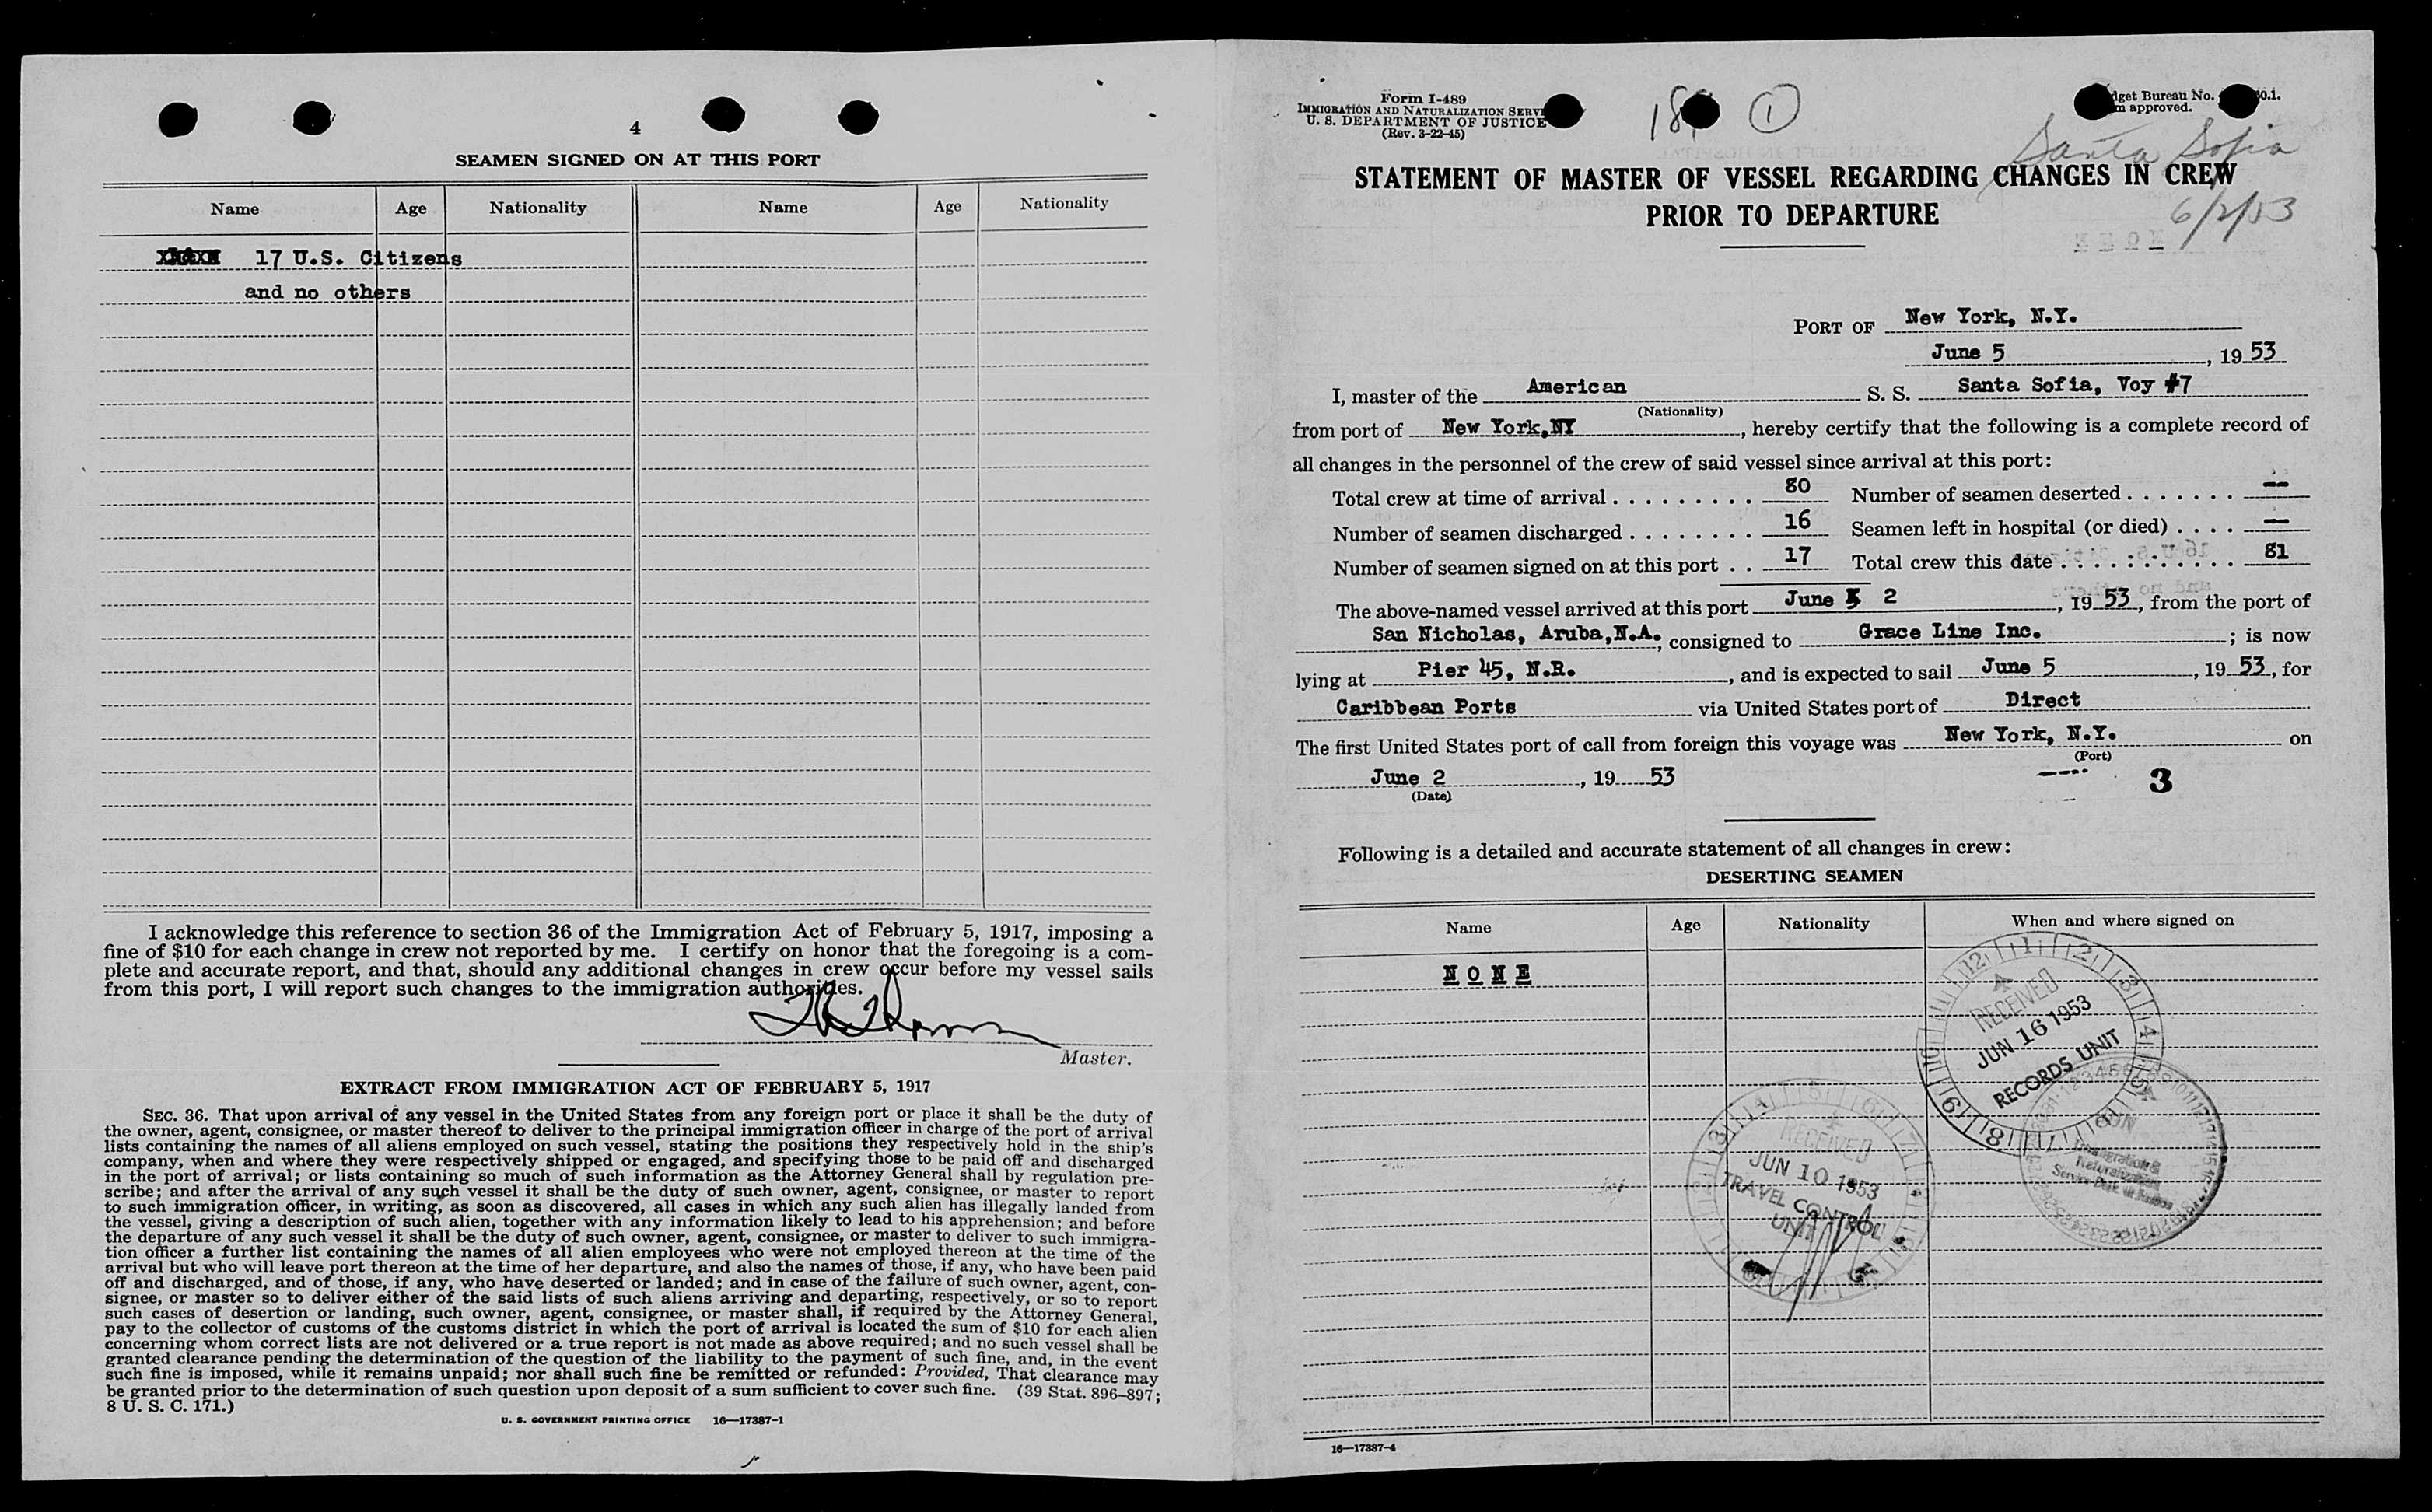 4
SEAMEN SIGNED ON AT THIS PORT
Name Age Nationality Name Age Nationality
17 U.S. Citizens
and no others
I acknowledge this reference to section 36 of the Immigration Act of February 5, 1917, imposing a
fine of $10 for each change in crew not reported by me. I certify on honor that the foregoing is a com-
plete and accurate report, and that, should any additional changes in crew occur before my vessel sails
from this port, I will report such changes to the immigration authorities.
Master.
EXTRACT FROM IMMIGRATION ACT OF FEBRUARY 5, 1917
SEC. 36. That upon arrival of any vessel in the United States from any foreign port or place it shall be the duty of
the owner, agent, consignee, or master thereof to deliver to the principal immigration officer in charge of the port of arrival
lists containing the names of all aliens employed on such vessel, stating the positions they respectively hold in the ship's
company, when and where they were respectively shipped or engaged, and specifying those to be paid off and discharged
in the port of arrival; or lists containing so much of such information as the Attorney General shall by regulation pre-
scribe; and after the arrival of any such vessel it shall be the duty of such owner, agent, consignee, or master to report
to such immigration officer, in writing, as soon as discovered, all cases in which any such alien has illegally landed from
the vessel, giving a description of such alien, together with any information likely to lead to his apprehension; and before
the departure of any such vessel it shall be the duty of such owner, agent, consignee, or master to deliver to such immigra-
tion officer a further list containing the names of all alien employees who were not employed thereon at the time of the
arrival but who will leave port thereon at the time of her departure, and also the names of those, if any, who have been paid
off and discharged, and of those, if any, who have deserted or landed; and in case of the failure of such owner, agent, con-
signee, or master so to deliver either of the said lists of such aliens arriving and departing, respectively, or so to report
such cases of desertion or landing, such owner, agent, consignee, or master shall, if required by the Attorney General,
pay to the collector of customs of the customs district in which the port of arrival is located the sum of $10 for each alien
concerning whom correct lists are not delivered or a true report is not made as above required; and no such vessel shall be
granted clearance pending the determination of the question of the liability to the payment of such fine, and, in the event
such fine is imposed, while it remains unpaid; nor shall such fine be remitted or refunded: Provided, That clearance may
be granted prior to the determination of such question upon deposit of a sum sufficient to cover such fine. (39 Stat. 896–897;
8 U. S. C. 171.)
U. S. GOVERNMENT PRINTING OFFICE 16—17387-1
Form I-489
IMMIGRATION AND NATURALIZATION SERV
U. S. DEPARTMENT OF JUSTICE
(Rev. 3-22-45)
18 1
dget Bureau No. 0.1.
m approved.
Santa Sofia
6/2/53
STATEMENT OF MASTER OF VESSEL REGARDING CHANGES IN CREW
PRIOR TO DEPARTURE
PORT OF New York, N.Y.
June 5, 19 53
I, master of the American S. S. Santa Sofia, Voy #7
(Nationality)
from port of New York,NY, hereby certify that the following is a complete record of
all changes in the personnel of the crew of said vessel since arrival at this port:
Total crew at time of arrival . . . . . . . . . 80 Number of seamen deserted . . . . . . . —
Number of seamen discharged . . . . . . . . 16 Seamen left in hospital (or died) . . . . —
Number of seamen signed on at this port . . 17 Total crew this date . . . . . . . . . . . 81
The above-named vessel arrived at this port June 2, 19 53, from the port of
San Nicholas, Aruba,N.A., consigned to Grace Line Inc.; is now
lying at Pier 45, N.R., and is expected to sail June 5, 19 53, for
Caribbean Ports via United States port of Direct
The first United States port of call from foreign this voyage was New York, N.Y. on
(Port)
June 2, 19 53
(Date)
3
Following is a detailed and accurate statement of all changes in crew:
DESERTING SEAMEN
Name Age Nationality When and where signed on
NONE
RECEIVED
JUN 16 1953
RECORDS UNIT
Immigration &
Naturalization
Service-Dept. of Justice
RECEIVED
JUN 10 1953
TRAVEL CONTROL
UNIT
16—17387-4